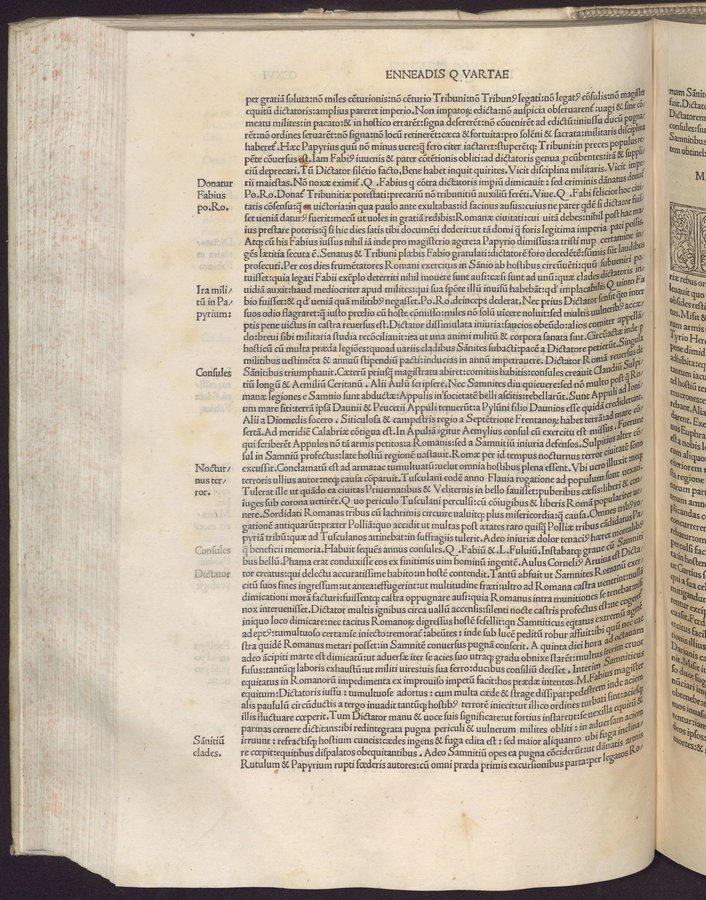 ENNEADIS Q VARTAE
per gratiã soluta:nõ miles cẽturionis:nõ cẽturio Tribuni:nõ Tribunꝰ legati:nõ legatꝰ cõsulis:nõ magister
equitũ dictatoris:amplius pareret imperio. Non impatoꝝ edicta:nõ auspicia obseruarent :uagi & sine cõ/
meatu milites:in pacato:& in hostico errarẽt:signa desererẽt:nõ cõuenirẽt ad edictũ:iniussu ducũ pugna/
rẽt:nõ ordines seruarẽt:nõ signa:nõ locũ retinerẽt:cæca & fortuita:pro solẽni & sacrata:militaris disciplina
haberet. Hæc Papyrius quũ nõ minus uere:ꝗ̃ fero citer iactaret:stuperẽtꝗ; Tribuni:in preces populus re/
pẽte cõuersus est. Iam Fabiꝰ iuuenis & pater cõtẽtionis obliti:ad dictatoris genua ꝓcũbentes:irã & suppli
ciũ deprecari. Tũ Dictator silẽtio facto, Bene habet inquit quirites. Vicit disciplina militaris. Vicit impe
Donatur
Fabius
po.Ro.
rii maiestas. Nõ noxæ eximit. Q .Fabius ꝗ cõtra dictatoris impiũ dimicauit : sed criminis dãnatus donat
Po.Ro. Donat Tribunitiæ potestati:precariũ nõ tribunitiũ auxiliũ ferẽti. Viue.Q .Fabi felicior hoc ciui/
tatis cõsensu:ꝗ̃ ea uictoria:in qua paulo ante exultabas:id facinus ausus:cuius ne pater qdẽ si dictator fuis/
set ueniã daturꝰ fuerit:mecũ ut uoles in gratiã redibis:Romanæ ciuitati:cui uitã debes:nihil post hac ma/
ius prestare poteris:ꝗ̃ si hic dies satis tibi documẽti dederit:ut tã domi ꝗ̃ foris legitima imperia pati possis.
Atꝗ; cũ his Fabius iussus nihil iã inde pro magisterio agere:a Papyrio dimissus:a tristi nup certamine in/
gẽs lætitia secuta ẽ. Senatus & Tribuni plæbis Fabio gratulati:dictatorẽ foro decedẽtẽ:sũmis sũt laudibus
prosecuti.Per eos dies frumẽtatores Romani exercitus in Sãnio ab hostibus circũuẽti:quũ subueniri po/
Ira mili/
tũ in Pa/
pyrium:
tuisset:quia legati Fabii exẽplo deterriti nihil mouere sunt ausi:cæsi sunt ad unũ:quæ clades dictatoris in/
uidiã auxit:haud mediocriter apud milites:qui sua spõte illũ inuisũ habebãt:qd' implacabilis Q uinto Fa
bio fuisset:& qd' ueniã quã militibꝰ negasset.Po.Ro.deinceps dederat, Nec prius Dictator sensit qto inter
suos odio flagraret:ꝗ̃ iusto prœlio cũ hoste cõmisso:miles nõ solũ uĩcere noluit:sed multis uulneribꝰ accæ/
ptis pene uictus in castra reuersus est.Dictator dissimulata iniuria:saucios obeũdo:alios comiter appellã/
do:breui sibi militaria studia recõciliauit:ita ut una animi militũ & corpora sanata sint.Circũactæ inde p
hosticũ cũ multa præda legiões:quoad uariis cladibus Sãnites subacti:pacẽ a Dictatore petierũt.Singula
militibus uestimẽta & annuũ stipendiũ pacti:inducias in annũ impetrauere. Dictator Romã reuersus de
Consules
Sãnitibus triumphauit.Cæterũ priusꝗ̃ magistratu abiret:comitiis habitis:consules creauit Claudiũ Sulpi/
tiũ longũ & Aemiliũ Ceritanũ . Alii Aulũ scripsere.Nec Samnites diu quieuere:sed nõ multo post ꝗ̃ Ro/
manæ legiones e Samnio sunt abductæ:Appulis in societatẽ belli ascitis:rebellarũt.Sunt Appuli ad Ioni/
um mare siti:terrã ipsã Daunii & Peucetii Appuli tenuerũt:a Pylũni filio Daunios esse quidã crediderunt.
Alii a Diomedis socero . Siticulosa & campestris regio a Septẽtrione Frentanoꝝ habet terrã:ad mare cõ/
sertã.Ad meridiẽ Calabriæ cõtigua est.In Apuliã igitur Aemylius consul cũ exercitu est missus. Fuerunt
qui scriberẽt Appulos nõ tã armis petitos:a Romanis:sed a Samnitiũ iniuria defensos.Sulpitius alter cõ/
sul in Samniũ profectus:late hostiũ regionẽ uastauit.Romæ per id tempus nocturnus terror ciuitatẽ somno
Noctur/
nus ter/
ror.
excussit.Conclamatũ est ad arma:tac tumultuatũ:uelut omnia hostibus plena essent. Vbi uero illuxit necp
terroris ullius autor:necp causa cõparuit.Tusculani eodẽ anno Flauia rogatione ad populum sunt uexati.
Tulerat ille ut quædã ea ciuitas Priuernatibus & Veliternis in bello fauisset:puberibus cæsis:liberi & con/
iuges sub corona uenirẽt.Q uo periculo Tusculani perculsi:cũ cõiugibus & liberis Romã populariter ue/
nere.Sordidati Romanas tribus cũ lachrimis circuire:ualuitꝗ; plus misericordia:ꝗ̃ causa.Omnes tribꝰ ro/
gationẽ antiquarũt:præter Polliã:quo accidit ut multas post ætates raro quisꝗ̃ Polliæ tribus cãdidatus Pa/
pyriã tribũ:quæ ad Tusculanos attinebat:in suffragiis tulerit.Adeo iniuriæ dolor tenaciꝰ hæret mortalibꝰ
Consules
ꝗ̃ beneficii memoria. Habuit sequẽs annus consules.Q .Fabiũ & .L.Fuluiũ.Instabatꝗ; graue cũ Samniti
bus bellũ.Phama erat conduxisse eos ex finitimis uim hominũ ingentẽ.Aulus Corneliꝰ Aruina est Dicta/
Dictator
tor creatus:qui delectu accuratissime habito:in hostẽ contendit. Tantũ abfuit ut Samnites Romanũ exer/
citũ suos fines ingressum:ut antea:effugerint:ut multitudine freti:ultro ad Romana castra uenerint:nulla
dimicationi morã facturi:fuissentꝗ; castra oppugnare ausi:quia Romanus intra munitiones se tenebat:nisi
nox interuenisset.Dictator multis ignibus circa uallũ accensis:silenti nocte castris profectus est:ne cogeret
iniquo loco dimicare:nec tacitus Romanoꝝ digressus hostẽ fefellit:qn Samniticus eqtatus extremũ agmẽ
adeptꝰ:tumultuoso certamĩe iniecto:remorat' abeũtes : inde sub lucẽ peditũ robur affuit:ibi quũ nec ca/
stra quidẽ Romanus metari posset:in Samnitẽ conuersus pugnã conserit. A quinta diei hora ad octauam
adeo ãcipiti marte est dimicatũ:ut aduersæ iter se acies suo utraꝗ; gradu obnixæ starẽt:multus:terĩm cruor
fusus:tantũꝗ; laboris exhaustũ:ut militi uires:uis sua ferro:ducibus consiliũ deesset . Interim Samniticus
equitatus in Romanorũ impedimenta ex improuiso impetũ facit:hos prædæ intentos.M.Fabius magister
equitum:Dictatoris iussu : tumultuose adortus : cum multa cæde & strage dissipat:pedestrem inde aciem
ali paululũ circũductis a tergo inuadit tantũꝗ; hostibꝰ terrorẽ iniecit:ut illico ordines turbati sint:aciesꝗ;
illis fluctuare cœperit. Tum Dictator manu & uoce suis significare:ut fortius instarent:se uexilla equitũ &
parmas cernere dictitans:ibi redintegrata pugna periculi & uulnerum milites obliti : in aduersam aciem
Sãnitiũ
clades.
irruunt : refractisꝗ; hostium cuneis:cædes ingens & fuga edita est : sed maior aliquanto ubi fuga inclina/
re cœpit:equitibus dispalatos obequitantibus . Adeo Samnitiũ opes ea pugna cõciderũt:ut dãnatis armis
Rutulum & Papyrium rupti fœderis autores:cũ omni præda primis excursionibus parta:per legatos Ro/